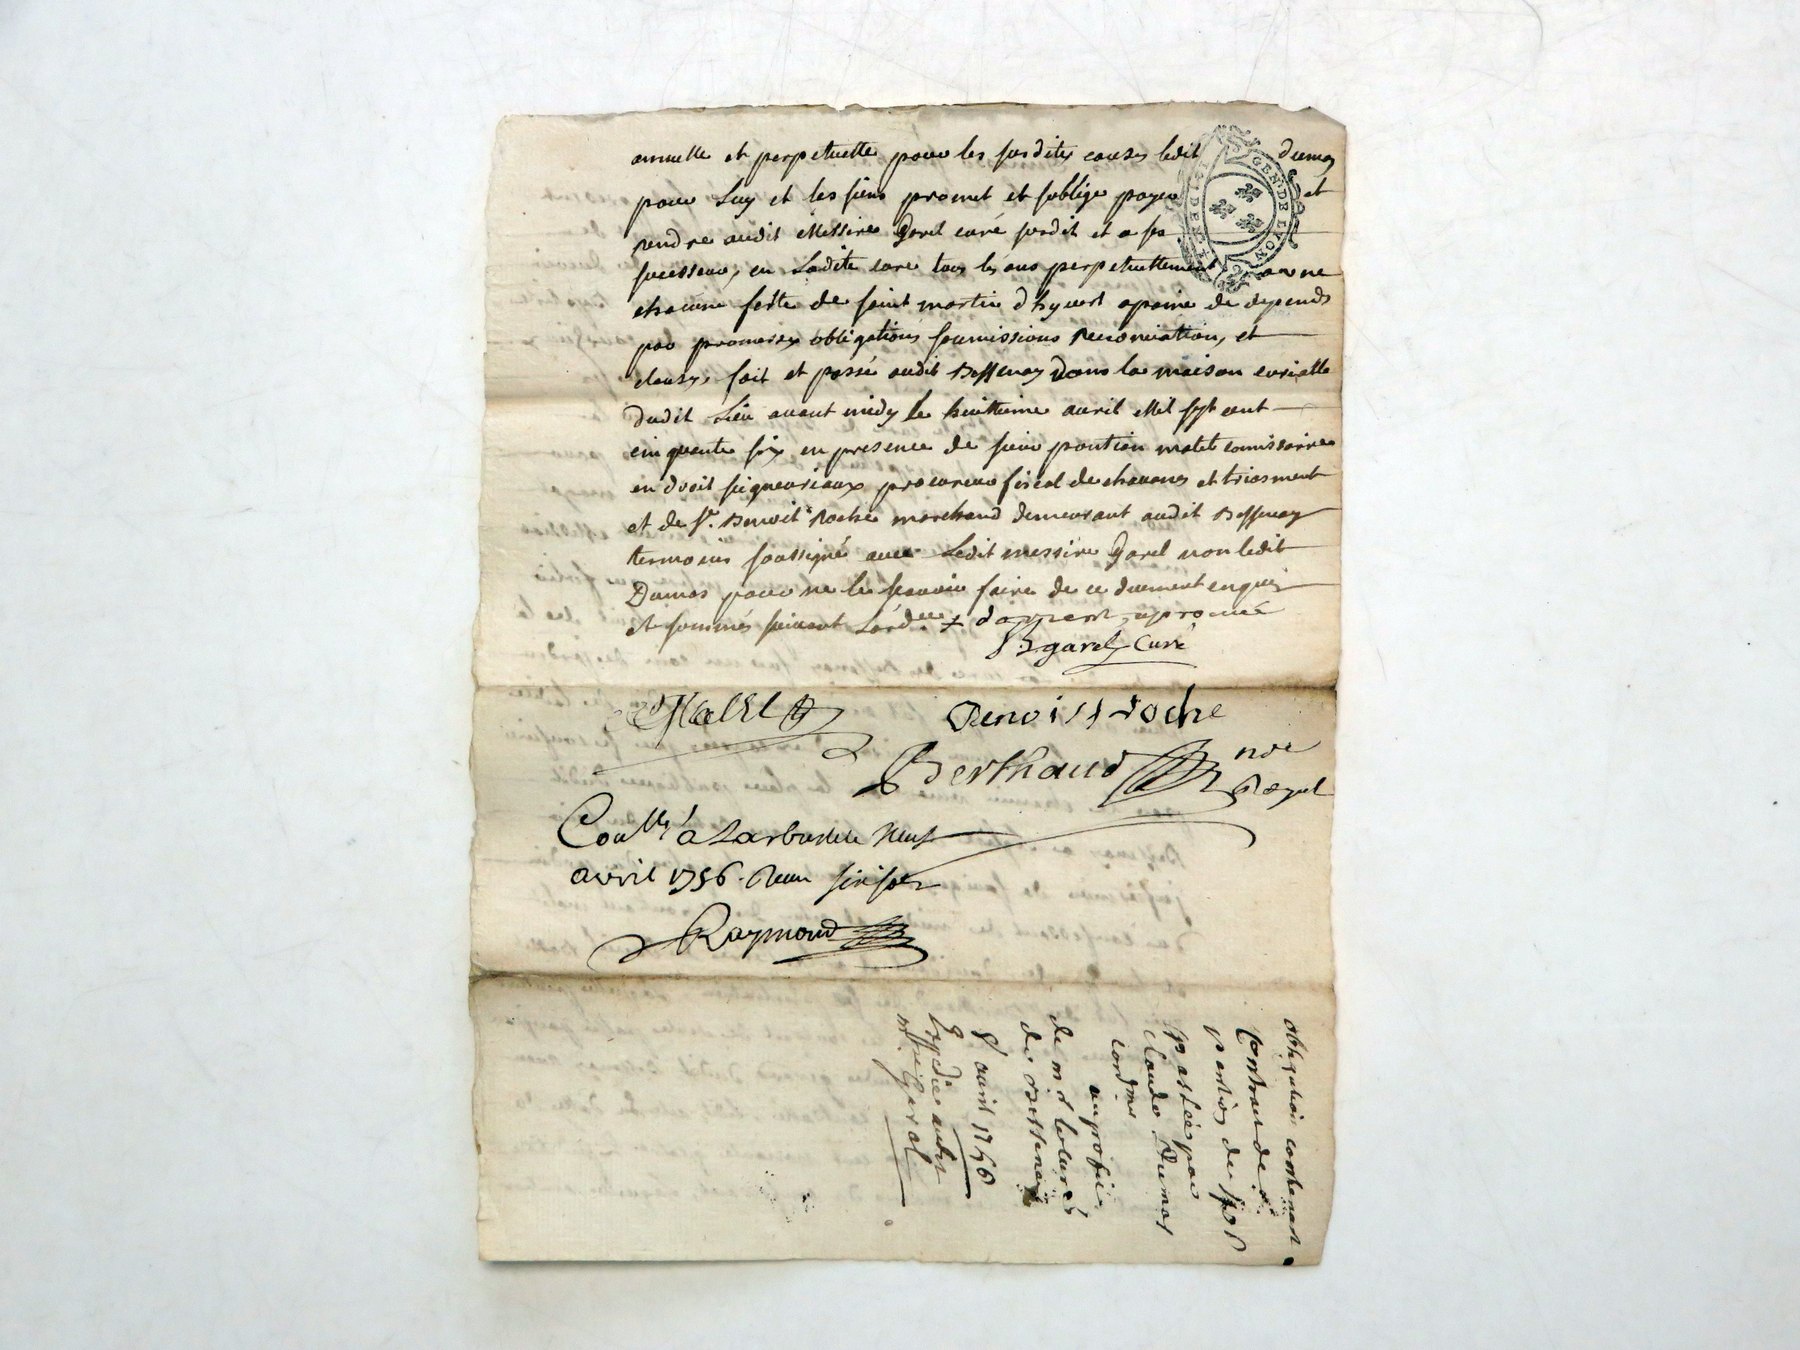 annuelle et perpetuelle pour les susdites causes ledit dumas
pour Luy et les siens promet et soblige payer et
rendre audit Messire Garel curé susdit et a ses
sucesseur, en Ladite cure tous les ans perpetuellement
chacune feste de saint martin d'hyvert apaine de depends
par promesses obligations soumissions renonciation, et
clauses, fait et passé audit Bessenay Dans la maison curialle
dudit Lieu avant midy le huittieme avril Mil sept cent
cinquante six en presence de sieur pontien matel comissaire
en droit seigneuriaux procureur fiscal de chavanes et
et de Sr. Benoit Roche marchand demeurant audit Bessenay
temoins soussigné avec Ledit messire Garel non ledit
Dumas pour ne le scavoir faire de ce duement enquis
et sommés suivant Lordce + aprouvé
garel Curé
Matel
Benoist roche
Berthaud nore
Royal
Conllé a Larbresle neuf
avril 1756. Reçu six sols
Raymond
obligation contenant
Contrat de
pention de
passée par
claude Dumas
au profit
de mr le curé
de Bessenay
8 avril 1756
Expediée audit
Garel
GEN. DE LYON